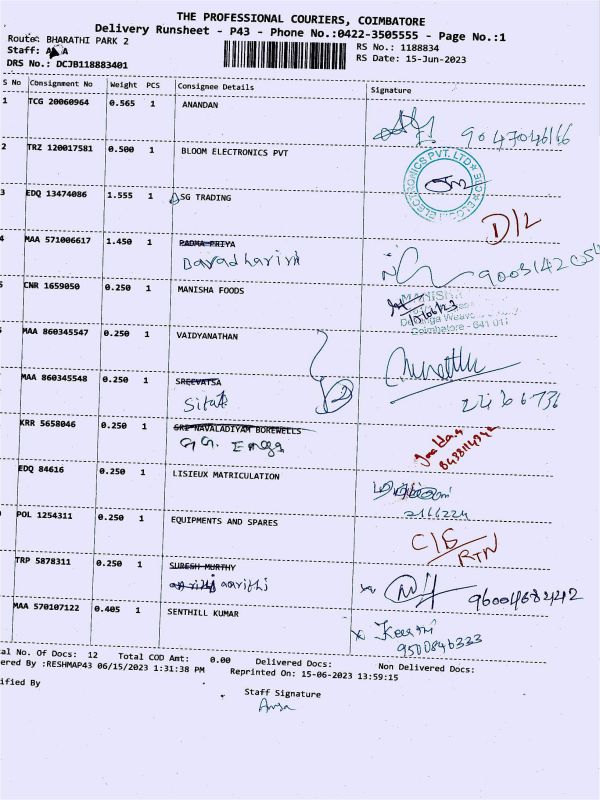 THE PROFESSIONAL COURIERS, COIMBATORE
Delivery Runsheet - P43 - Phone No.:0422-3505555 - Page No.:1
Route: BHARATHI PARK 2
RS No.: 1188834
Staff:
RS Date: 15-Jun-2023
DRS No.: DCJB118883401
S No Consignment No Weight PCS Consignee Details Signature
1 TCG 20060964 0.565 1 ANANDAN
9047046166
2 TRZ 120017581 0.500 1 BLOOM ELECTRONICS PVT
ELECTRONICS PVT. LTD
3 EDQ 13474086 1.555 1 SG TRADING
D/L
4 MAA 571006617 1.450 1 PADMA PRIYA
CNR 1659050 0.250 1 MANISHA FOODS
MANISHA
15/06/23
Coimbatore - 641 011
MAA 860345547 0.250 1 VAIDYANATHAN
MAA 860345548 0.250 1 SREEVATSA
2
2266736
KRR 5658046 0.250 1 SRI NAVALADIYAM BOREWELLS
EDQ 84616 0.250 1 LISIEUX MATRICULATION
2166224
POL 1254311 0.250 1 EQUIPMENTS AND SPARES
RTN
TRP 5878311 0.250 1 SURESH MURTHY
MAA 570107122 0.405 1 SENTHILL KUMAR
9500846333
al No. Of Docs: 12 Total COD Amt: 0.00 Delivered Docs: Non Delivered Docs:
ered By :RESHMAP43 06/15/2023 1:31:38 PM Reprinted On: 15-06-2023 13:59:15
ified By
Staff Signature